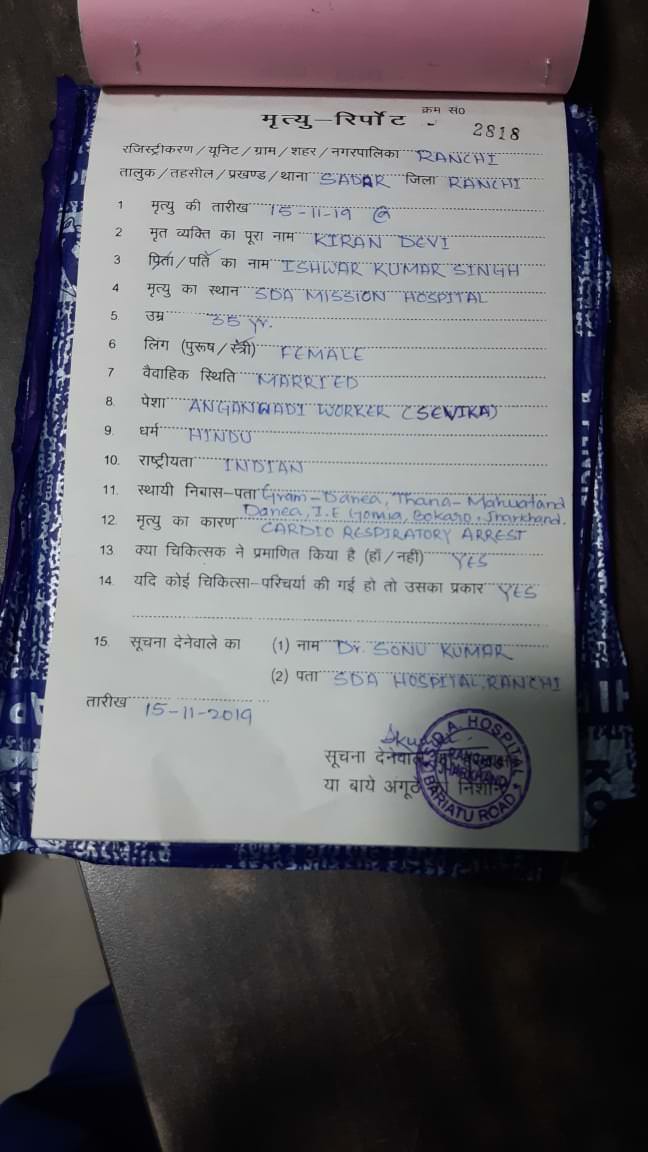 क्रम सं०
मृत्यु-रिर्पोट - 2818
रजिस्ट्रीकरण/यूनिट/ग्राम/शहर/नगरपालिका RANCHI
तालुक/तहसील/प्रखण्ड/थाना SADAR जिला RANCHI
1 मृत्यु की तारीख 15-11-19 @
2 मृत व्यक्ति का पूरा नाम KIRAN DEVI
3 पिता/पति का नाम ISHWAR KUMAR SINGH
4 मृत्यु का स्थान SDA MISSION HOSPITAL
5. उम्र 35 yr.
6 लिंग (पुरूष/स्त्री) FEMALE
7 वैवाहिक स्थिति MARRIED
8. पेशा ANGANWADI WORKER (SEVIKA)
9. धर्म HINDU
10. राष्ट्रीयता INDIAN
11. स्थायी निबास-पता Gram-Danea, Thana-Mahuatand
Danea, I.E Gomia, Bokaro, Jharkhand.
12. मृत्यु का कारण CARDIO RESPIRATORY ARREST
13. क्या चिकित्सक ने प्रमाणित किया है (हाँ/नहीं) YES
14. यदि कोई चिकित्सा-परिचर्या की गई हो तो उसका प्रकार YES
15. सूचना देनेवाले का (1) नाम Dr. SONU KUMAR
(2) पता SDA HOSPITAL, RANCHI
तारीख 15-11-2019
सूचना देनेवाले
या बाये अंगूठे निशान
S.D.A. HOSPITAL
RANCHI
JHARKHAND
BARIATU ROAD